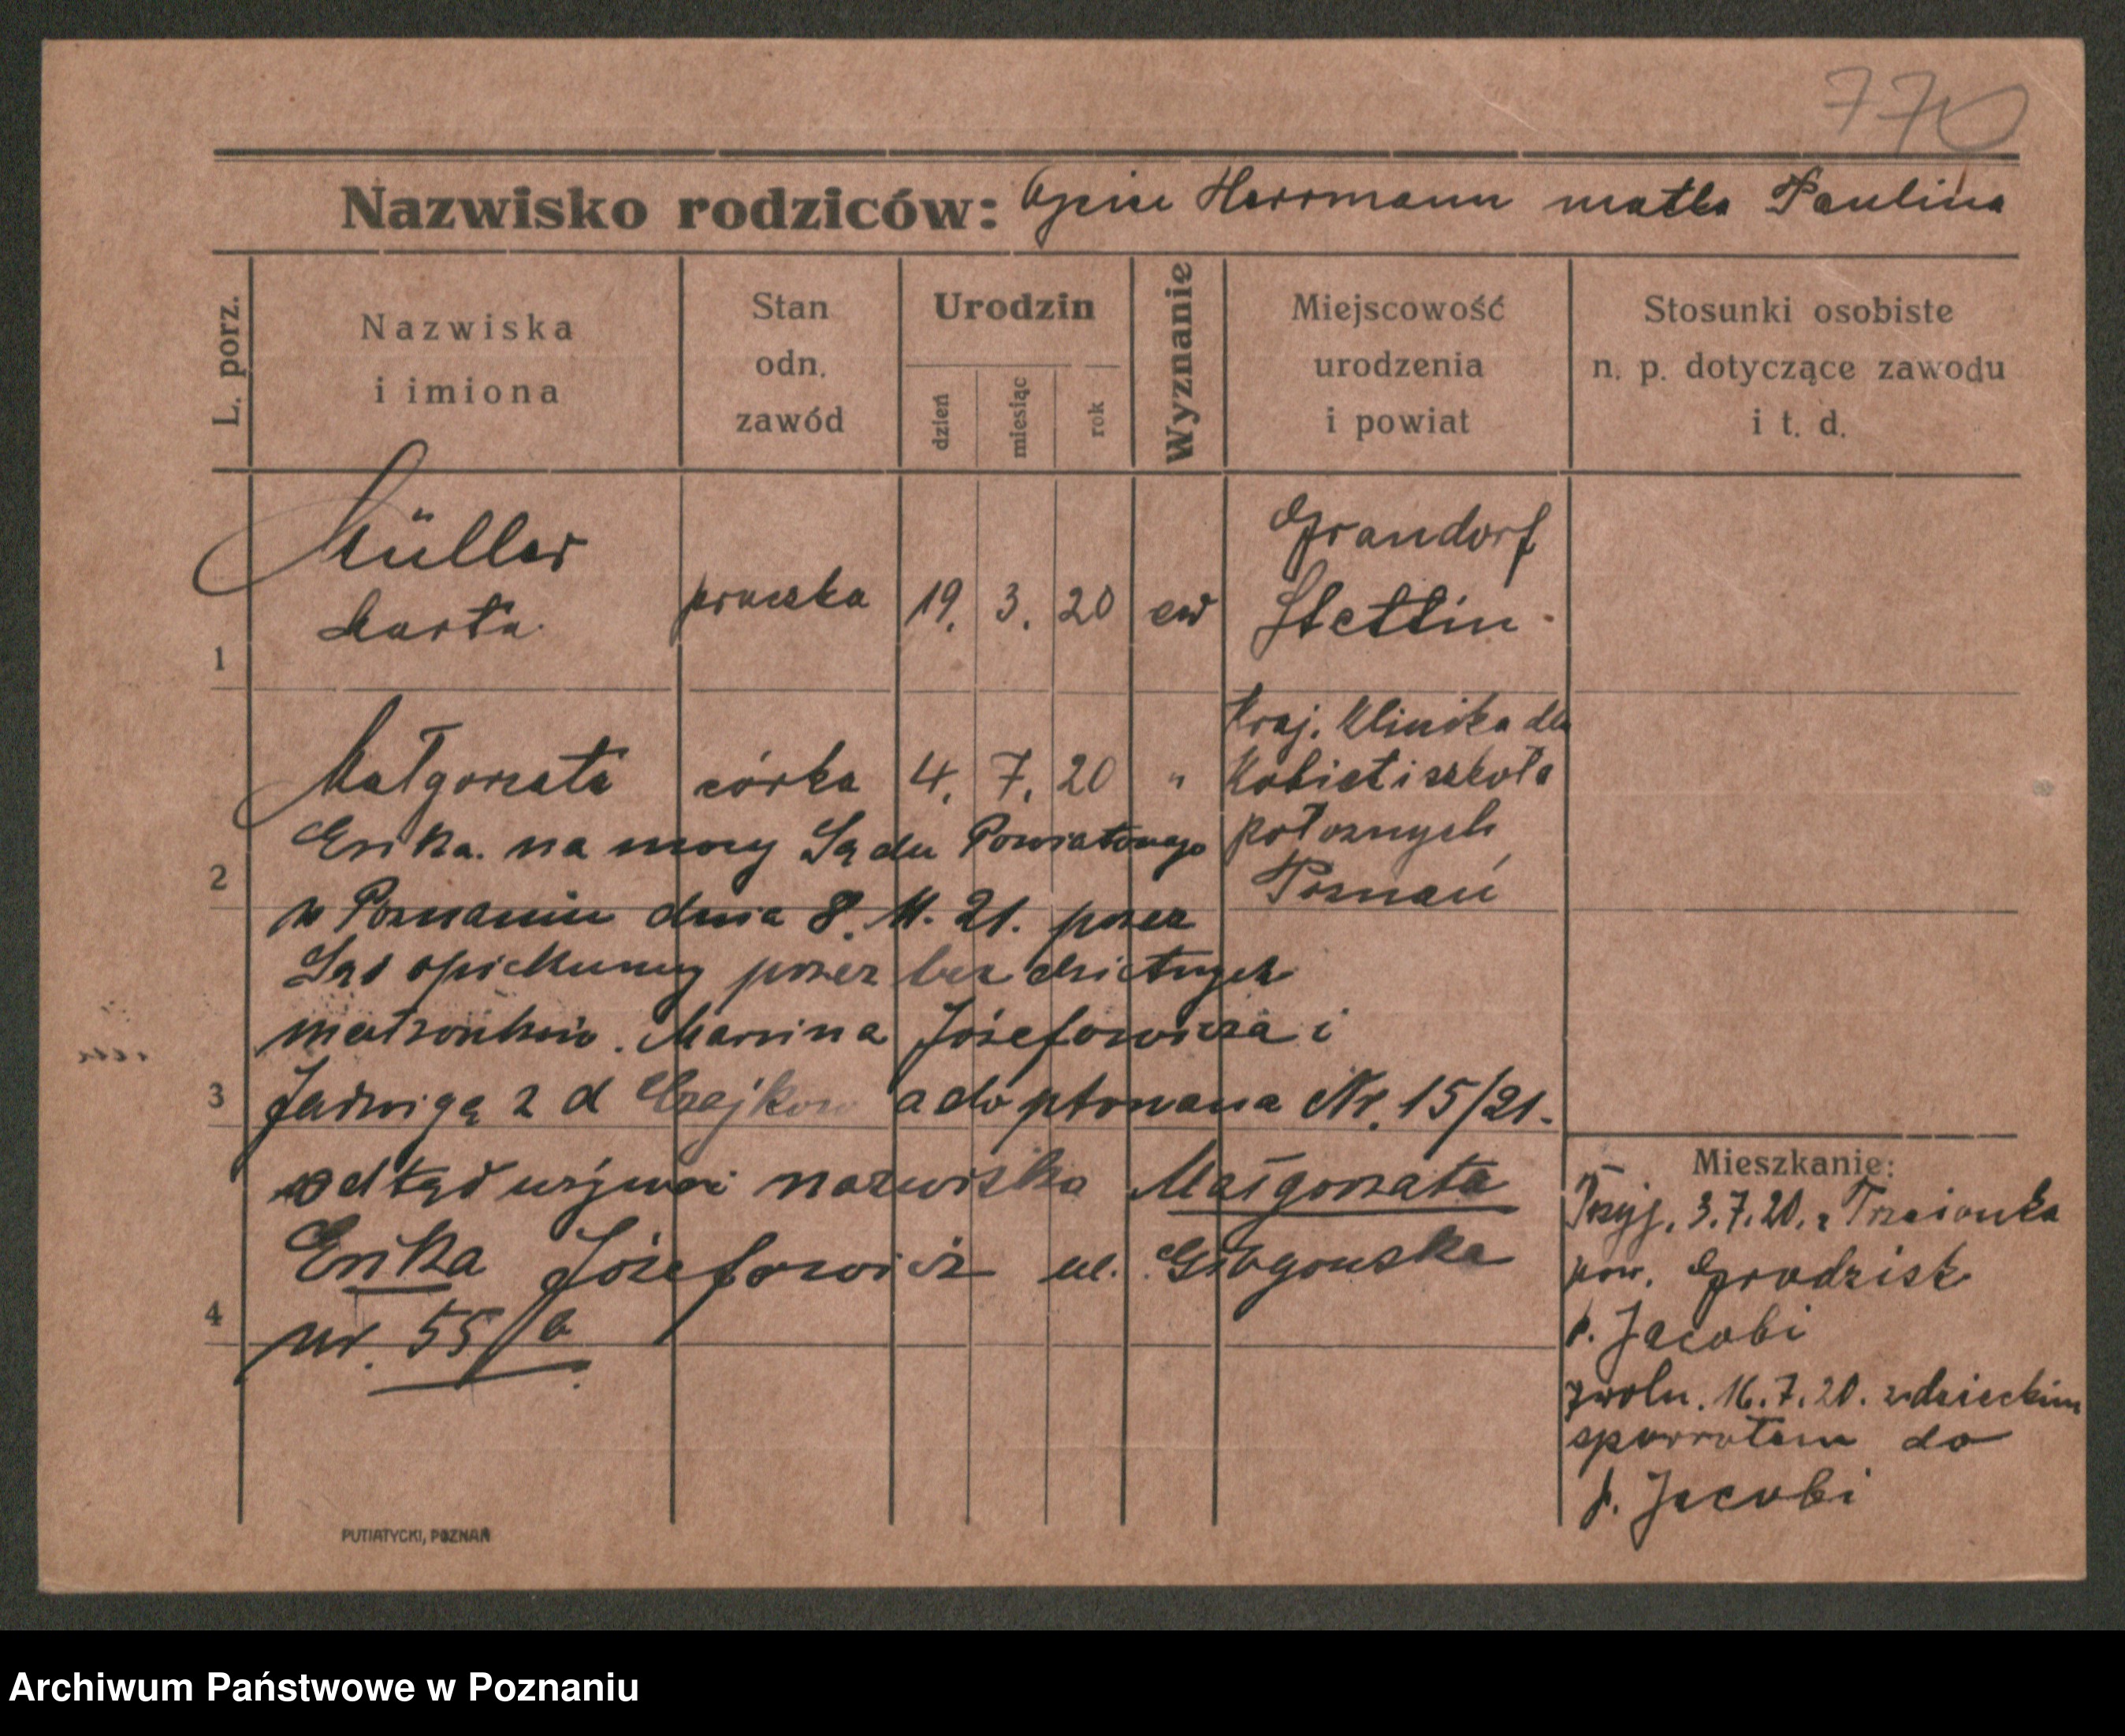 770
Nazwisko rodziców: Ojciec Herrmann matka Paulina
L. porz.
Nazwiska
i imiona
Stan
odn.
zawód
Urodzin
dzień
miesiąc
rok
Wyznanie
Miejscowość
urodzenia
i powiat
Stosunki osobiste
n. p. dotyczące zawodu
i t. d.
1
Müller
Marta
praczka
19. 3. 20
ew
Grandorf
Stettin
2
Małgorzata
córka
4. 7. 20
"
Kraj. Klinika dla
Kobiet i szkoła
położnych
Poznań
Erika. na mocy Sądu Powiatowego
w Poznaniu dnia 8. 11. 21. przez
Sąd opiekunczy przez bezdzietnych
małżonków. Marcina Józefowicza i
3
Jadwigą z d Czajkow adoptowana Nr. 15/21.
odtąd używa nazwiska Małgorzata
Erika Józefowicz ul. Głogowska
4
nr. 55/b
Mieszkanie:
Przyj. 3.7.20. z Trzcionka
pow. Grodzisk
p. Jacobi
zwoln. 16.7.20. z dzieckiem
spowrotem do
p. Jacobi
PUTIATYCKI, POZNAŃ
Archiwum Państwowe w Poznaniu